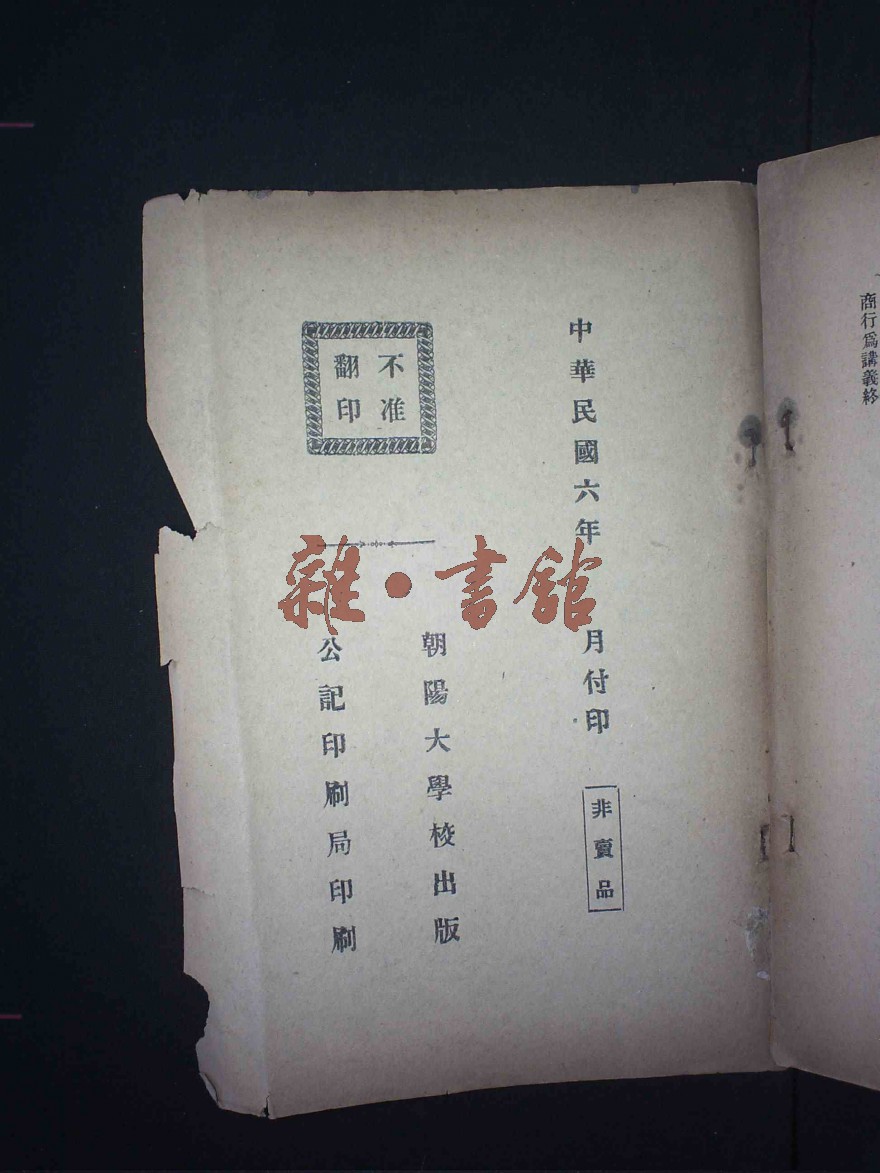 商行爲講義終
中華民國六年　月付印
非賣品
不准
翻印
朝陽大學校出版
公記印刷局印刷
雜·書館